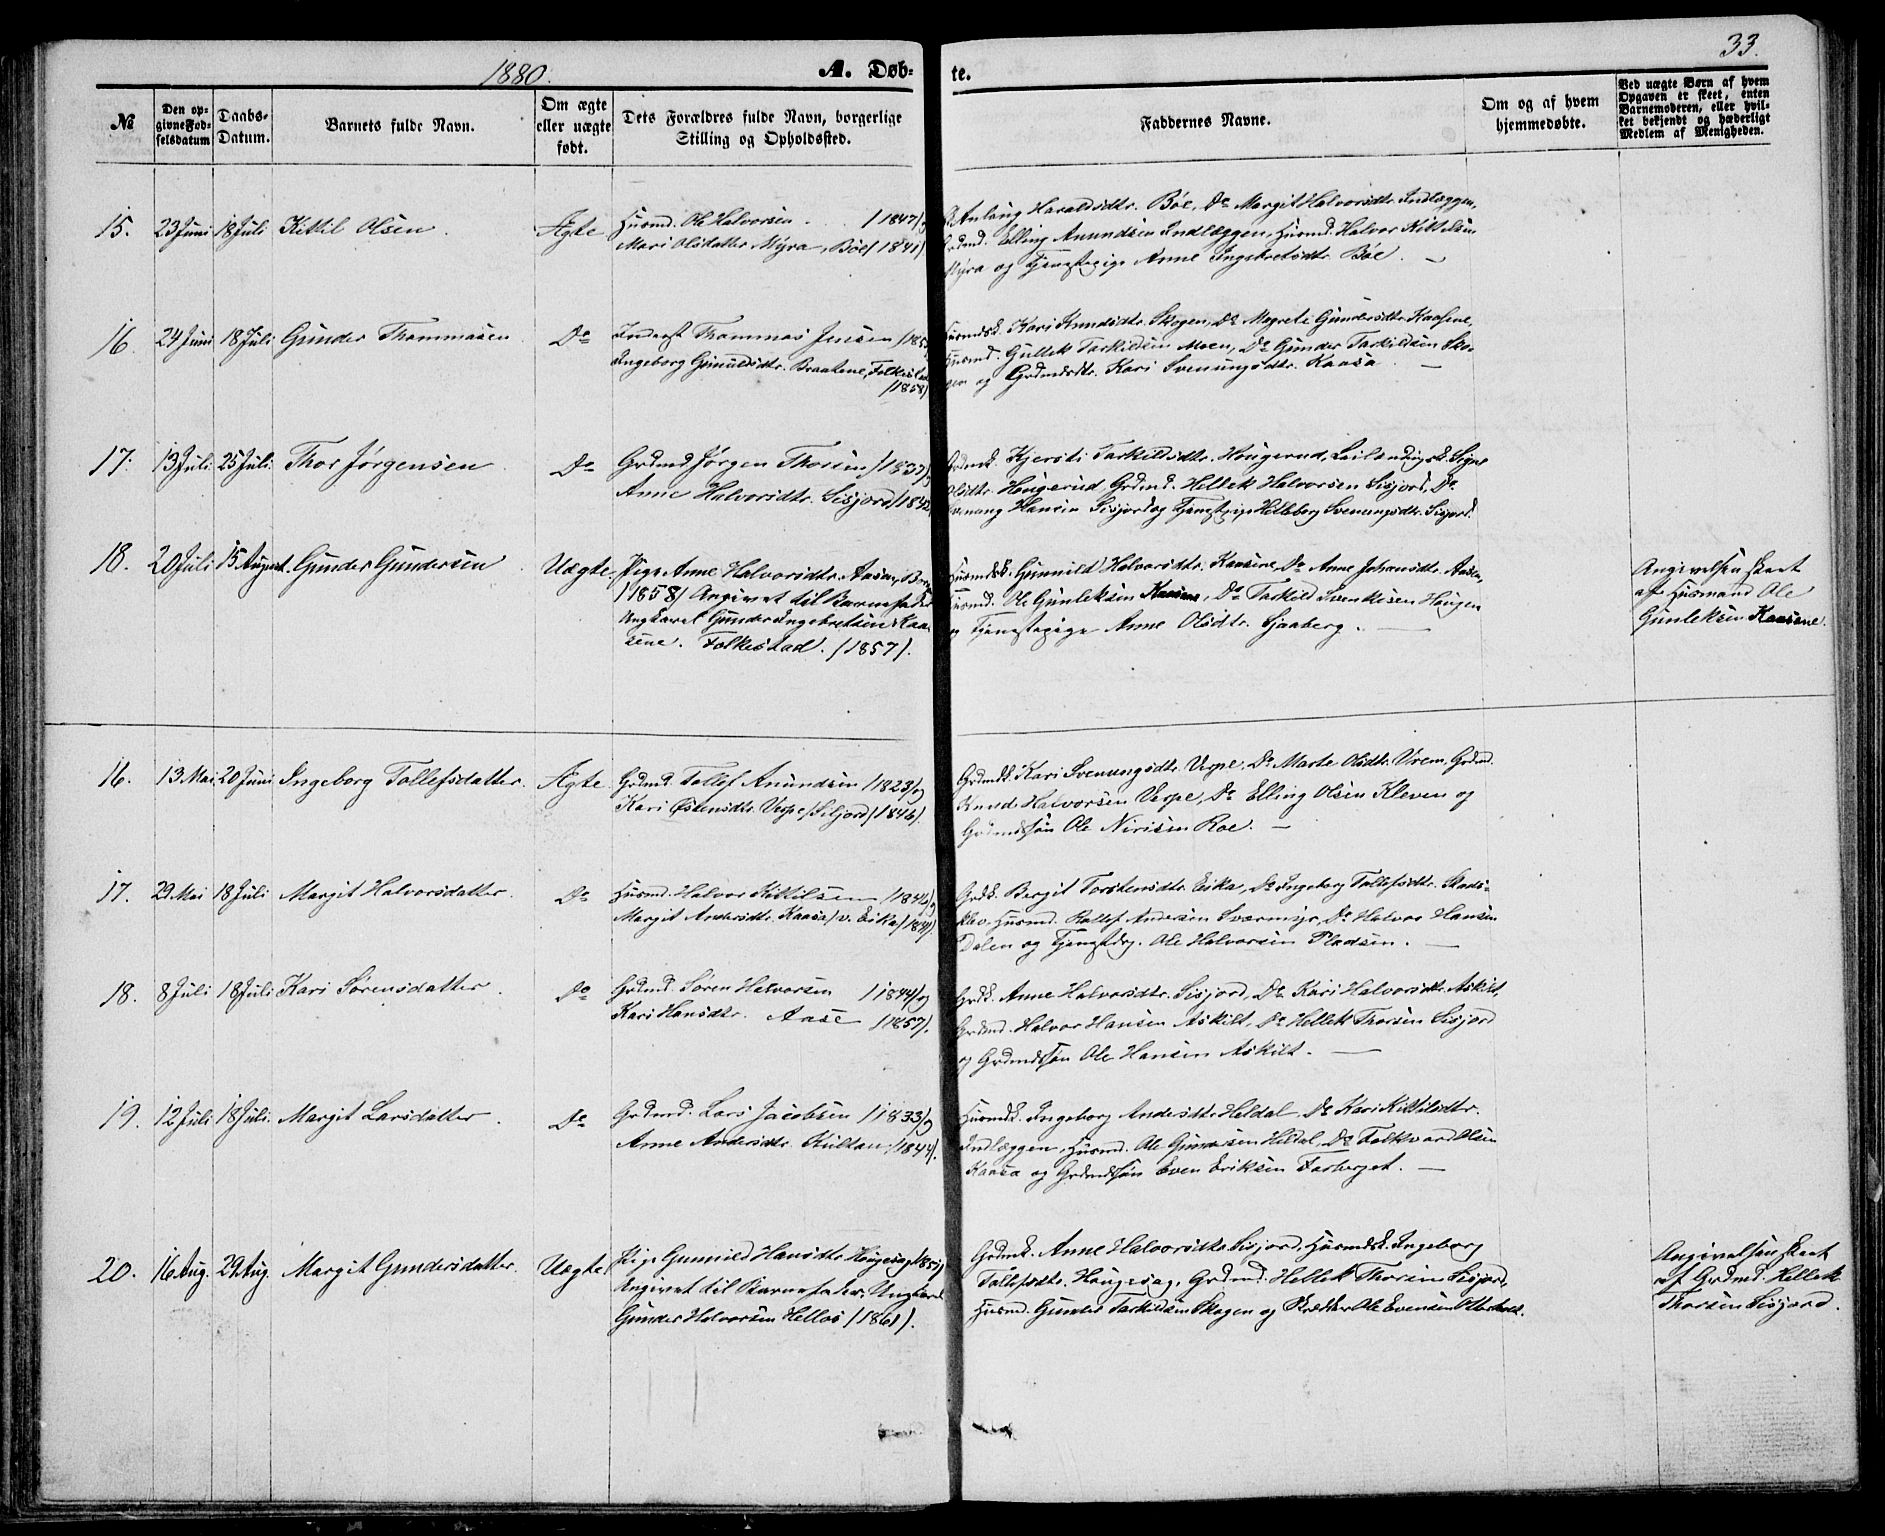 1880.
A. Døb-
te.
33.
№
Den op-
givne Fød-
selsdatum
Daabs-
Datum.
Barnets fulde Navn.
Om ægte
eller uægte
født.
Dets Forældres fulde Navn, borgerlige
Stilling og Opholdssted.
Faddernes Navne.
Om og af hvem
hjemmedøbte.
Ved uægte Børn af hvem
Opgaven er skeet, enten
Barnemoderen, eller hvil-
ket bekjendt og hæderligt
Medlem af Menigheden.
15. 23 Juni 18 Juli Kittil Olsen Ægte
Husmd. Ole Halvorsen /1847/ og
Mari Olsdatter Myra, Bøe /1841/
Anlaug Haraldsdtr. Bøe, Do Margit Halvorsdtr. Indlæggen,
Grdmd. Elling Anundsen Indlæggen, Husmd. Halvor Kittilsen
Myra og Tjenestepige Anne Ingebretsdtr. Bøe.
16. 24 Juni 18 Juli Gunder Thommasen Do
Inderst Thommas Jensen
Ingeborg Gunuldsdtr. Braatene, Folkestad
/1858/
Husmdsk. Kari Knudsdtr. Skogen, Do Magrete Gundersdtr. Kaasene,
Husmd. Gullek Tarkildsen Moen, Do Gunder Tarkildsen Sko-
gen og Grdmdsdtr. Kari Svenungsdtr. Kaasa.
17. 13 Juli 25 Juli. Thor Jørgensen Do
Grdmd Jørgen Thorsen /1837/
Anne Halvorsdtr. Sisjord /1842
Grdmdsk. Kjersti Tarkildsdtr. Haugerud, Leilendingsk. Signe
Olsdtr. Haugerud, Grdmd. Hellek Halvorsen Sisjord, Do
Hansen Sisjord og Tjenestepige Helleborg Svenungsdtr. Sisjord.
18. 20 Juli 15 August. Gunder Gundersen Uægte.
Pige Anne Halvorsdtr. Aasen, Bøe
/1858/ Angivet til Barnefader
Ungkarl Gunder Ingebretsen Kaa-
sene. Folkestad. /1857/.
Husmdsk. Gunnild Halvorsdtr. Kaasene, Do Anne Johansdtr. Aasen,
Husmd. Ole Gunleksen Kaasene, Do Tarkild Svenkesen Haugen
og Tjenestepige Anne Olsdtr. Sjaaberg.
Angivelsen skeet
af Husmand Ole
Gunleksen Kaasene.
16. 13 Mai 20 Juni Ingeborg Tollefsdatter. Ægte
Grdmd. Tollef Anundsen /1823/ og
Kari Østensdtr. Verpe /Siljord/ /1846/.
Grdmdsk. Kari Svenungsdtr. Verpe. Do Marte Olsdtr. Vrem, Grdmd.
Knud Halvorsen Verpe, Do Elling Olsen Kleven og
Grdmdssøn Ole Nirisen Roe.
17. 29 Mai 18 Juli Margit Halvorsdatter. Do
Husmd. Halvor Kittilsen og
Margit Andersdtr. Kaasa /v. Eika/
Grdk. Bergit Torstensdtr. Eika, Do Ingeborg Tollefsdtr. Stads-
klev, Husmd. Kollef Andersen Sværmyr, Do Halvor Hansen
Dalen og Tjenestdrg. Ole Halvorsen Pladsen.
18. 8 Juli 18 Juli Kari Sørensdatter. Do
Grdmd. Søren Halvorsen /1844/ og
Kari Hansdtr. Aase /1857/.
Grdk. Anne Halvorsdtr. Sisjord, Do Kari Halvorsdtr. Askilt,
Grdmd. Halvor Hansen Askilt, Do Hellek Thorsen Sisjord
og Grdmdssøn Ole Hansen Askilt.
19. 12 Juli 18 Juli. Margit Larsdatter. Do
Grdmd. Lars Jacobsen /1833/ og
Anne Andersdtr. /1844/.
Husmdsk. Ingeborg Andersdtr. Heldal, Do Kari Kittilsdtr.
Indlæggen, Husmd. Ole Gundersen Heldal, Do Folkvard Olsen
Kaasa og Grdmdssøn Even Eriksen Farberget.
20. 16 Aug. 29 Aug. Margit Gundersdatter. Uægte.
Pige Gunnild Hansdtr. Haugesag
Angivet til Barnefader: Ungkarl
Gunder Halvorsen Hellos /1861/.
Grdmdsk. Anne Halvorsdtr. Sisjord, Husmdsk. Ingeborg
Tollefsdtr. Haugesag, Grdmd. Hellek Thorsen Sisjord,
Husmd. Gunder Tarkildsen Skogen og Skrædder Ole Evensen
Angivelsen skeet
af Grdmd. Hellek
Thorsen Sisjord.